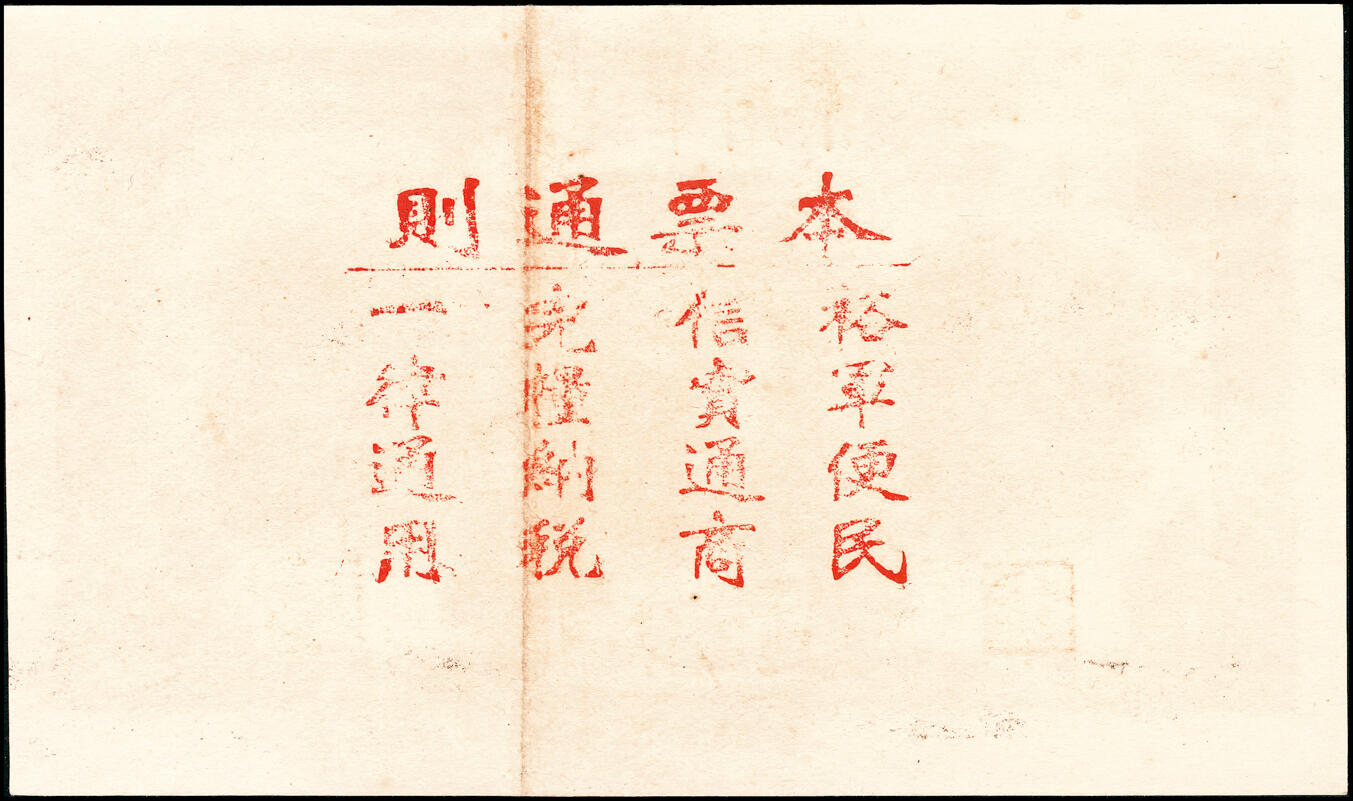 本票通則
裕軍便民
信實通商
完糧納税
一律通用